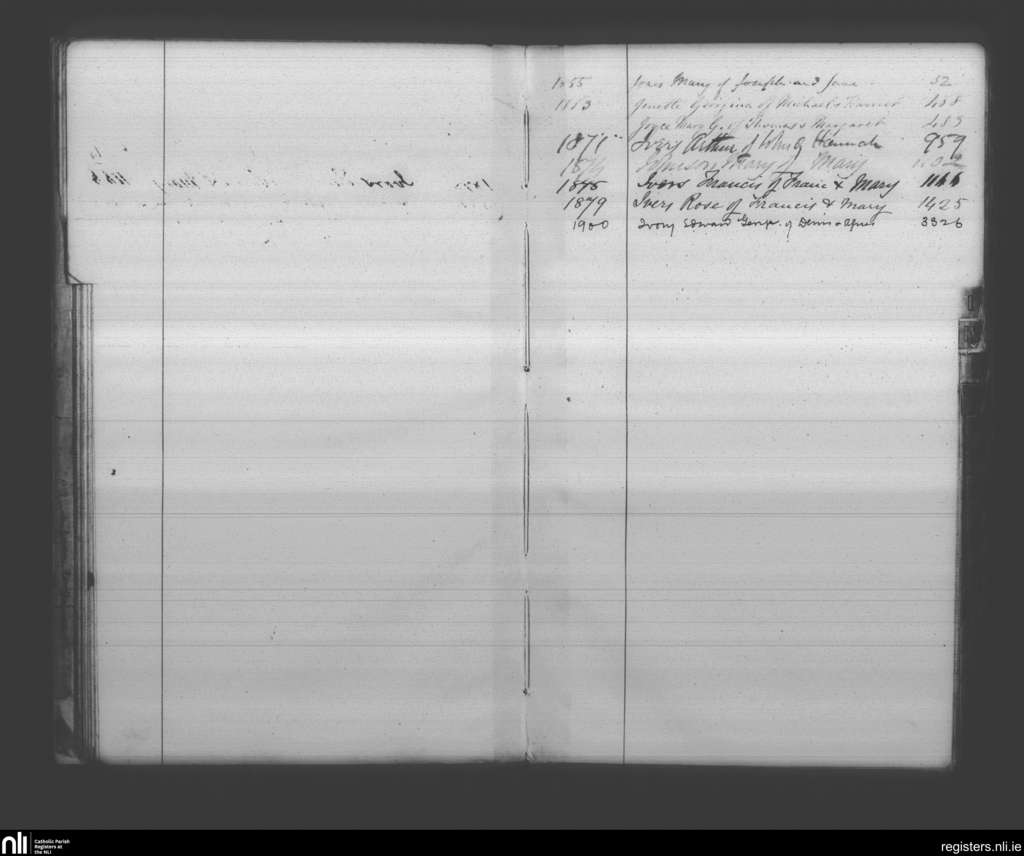 1855 Mary of Joseph and Jane 52
1863 Georgina of Michael & Harriet 458
Joyce Mary G. of Thomas & Margaret 489
1871 Ivery Arthur of John & Hannah 959
1874 Jameson Mary of Mary
1878 Ivors Francis of Francis & Mary 1166
1879 Ivers Rose of Francis & Mary 1425
1900 Ivory Edward George of Denis & Agnes 3326
nli
Catholic Parish
Registers at
the NLI
registers.nli.ie